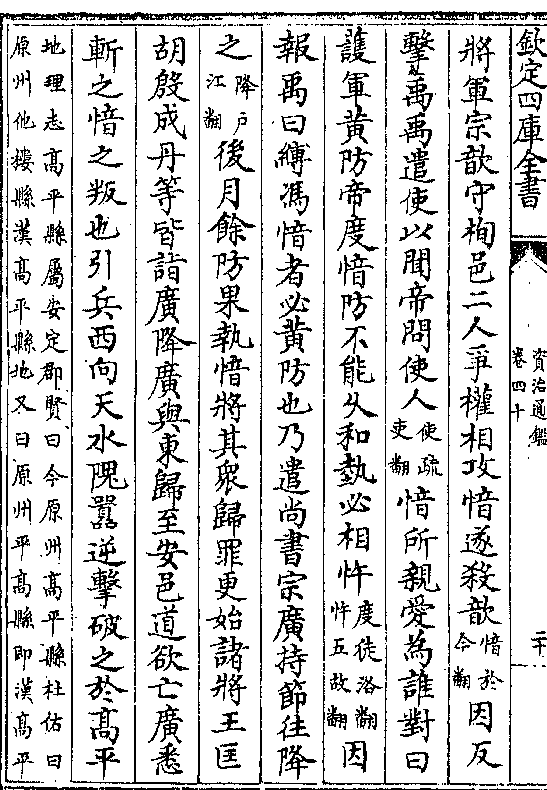 欽定四庫全書
資治通鑑
卷四十
二十
將軍宗歆守栒邑二人爭權相攻愔遂殺歆愔於今翻因反
擊禹禹遣使以聞帝問使人使疏吏翻愔所親愛為誰對曰
護軍黄防帝度愔防不能久和埶必相忤度徒洛翻忤五故翻因
報禹曰縛馮愔者必黄防也乃遣尚書宗廣持節往降
之降户江翻後月餘防果執愔將其衆歸罪更始諸將王匡
胡殷成丹等皆詣廣降廣與東歸至安邑道欲亡廣悉
斬之愔之叛也引兵西向天水隗囂逆擊破之於髙平
地理志髙平縣屬安定郡賢曰今原州髙平縣杜佑曰
原州他樓縣漢髙平縣地又曰原州平髙縣即漢髙平